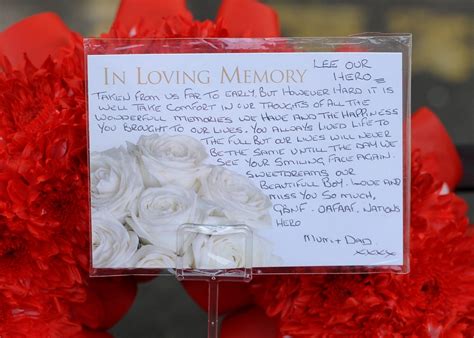 IN LOVING MEMORY LEE OUR
HERO =
TAKEN FROM US FAR TO EARLY, BUT HOWEVER HARD IT IS
WE'LL TAKE COMFORT IN OUR THOUGHTS OF ALL THE
WONDERFULL MEMORIES WE HAVE AND THE HAPPINESS
YOU BROUGHT TO OUR LIVES. YOU ALWAYS LIVED LIFE TO
THE FULL BUT OUR LIVES WILL NEVER
BE THE SAME UNTILL THE DAY WE
SEE YOUR SMILING FACE AGAIN.
SWEETDREAMS OUR
BEAUTIFULL BOY. LOVE AND
MISS YOU SO MUCH,
GBNF. OAFAAF, NATIONS
HERO
MUM + DAD
xxxx